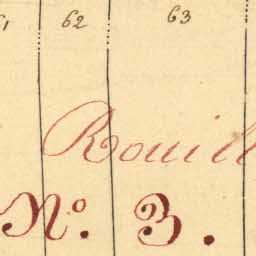 62 63
Rouill
No. 3.